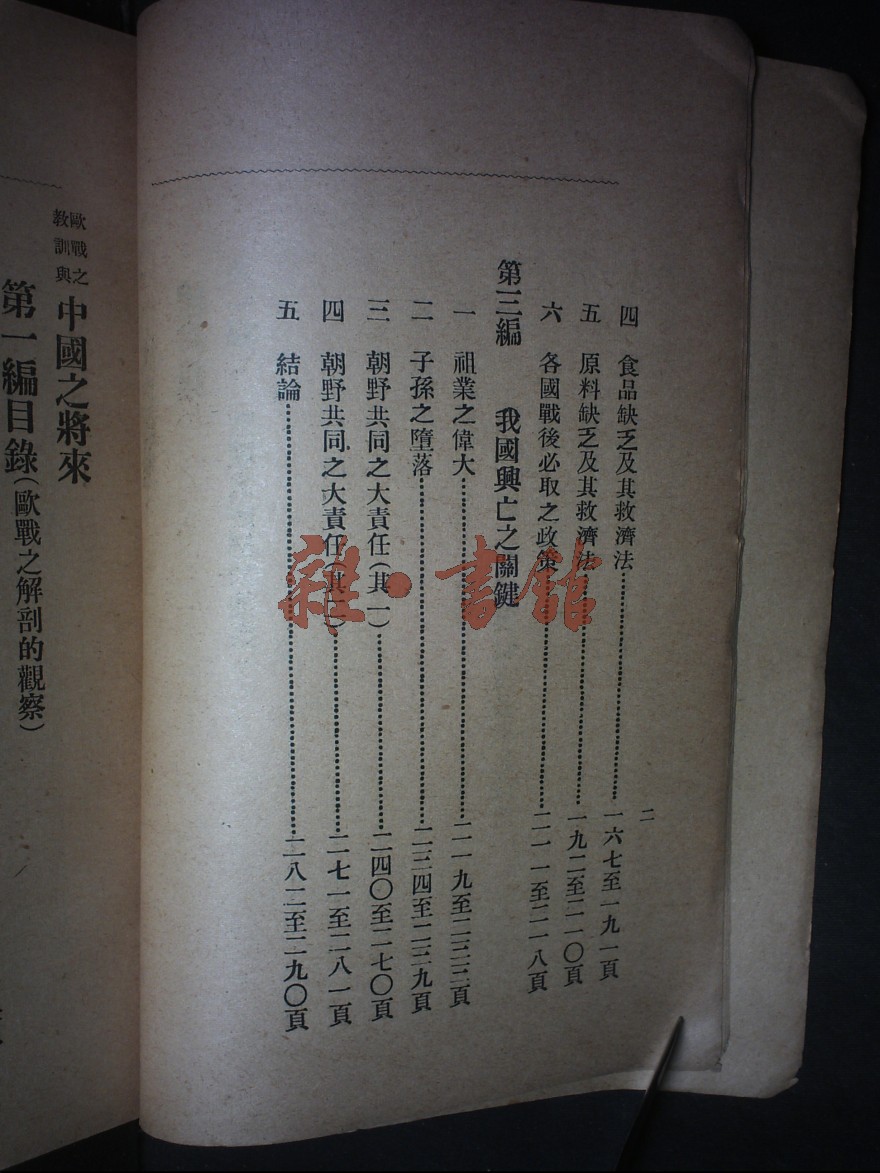 二
四 食品缺乏及其救濟法 一六七至一九一頁
五 原料缺乏及其救濟法 一九二至二一〇頁
六 各國戰後必取之政策 二一一至二一八頁
第三編 我國興亡之關鍵
一 祖業之偉大 二一九至二三三頁
二 子孫之墮落 二三四至二三九頁
三 朝野共同之大責任(其一) 二四〇至二七〇頁
四 朝野共同之大責任(其二) 二七一至二八一頁
五 結論 二八二至二九〇頁
歐戰之教訓與 中國之將來
第一編目錄(歐戰之解剖的觀察)
雜·書館